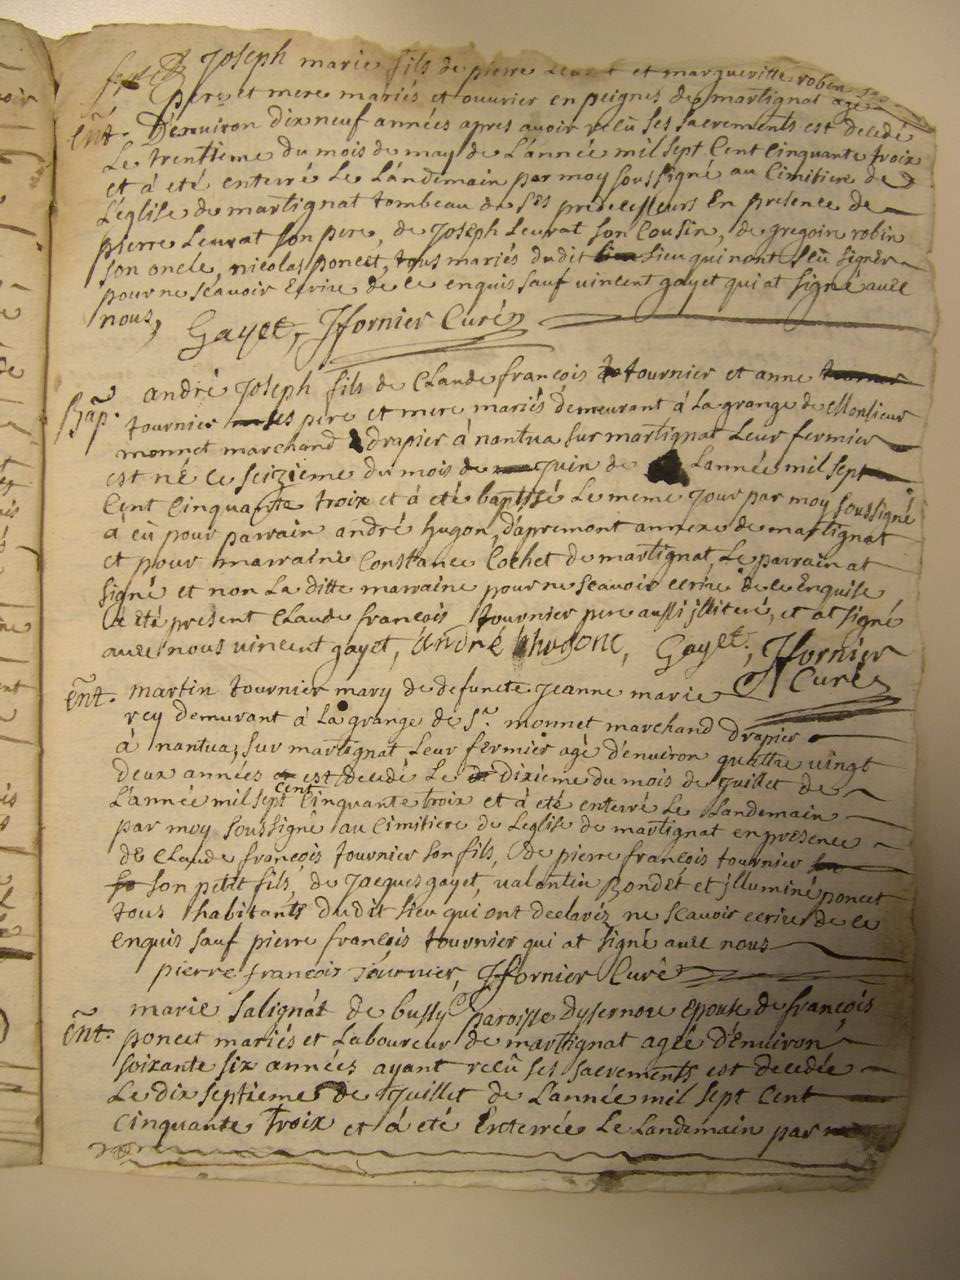 Joseph marie fils de pierre Leurat et margueritte robin
pere et mere mariés et ouvrier en peignes de martignat agé
Ent. D'environ dix neuf années apres avoir reçû ses sacrements est decedé
Le trentieme du mois de may de L'année mil sept Cent Cinquante troix
et à eté enterré Le Landemain par moy soussigné au Cimitiere de
L'église de martignat tombeau de ses predecesseurs En présence de
pierre Leurat son pere, de Joseph Leurat son Cousin, de gregoire robin
son oncle, nicolas poncet, tous mariés dudit lieu qui nont sçû signer
pour ne sçavoir ecrire de ce enquis sauf vincent gayet qui at signé avec
nous, Gayet, JFornier Curé
Bap. andré Joseph fils de Claude françois tournier et anne
tournier ses pere et mere mariés demeurant à La grange de Monsieur
monnet marchand drapier à nantua sur martignat Leur fermier
est né Le seizieme du mois de Juin de L'année mil sept
Cent Cinquante troix et à eté baptisé Le meme Jour par moy soussigné
a eû pour parrain andré hugon, d'apremont annexe de martignat
et pour marraine Constance Cochet de martignat, Le parrain at
signé et non La ditte marraine pour ne sçavoir ecrire de ce Enquise
a été present Claude françois tournier pere aussi jlliteré, et at signé
avec nous vincent gayet, André hugone, Gayet, JFornier
Curé
Ent. martin tournier mary de defuncte Jeanne marie
rey demurant à La grange de Sr. monnet marchand drapier
à nantua, sur martignat Leur fermier agé d'environ quattre vingt
deux années est decedé Le dixieme du mois de Juillet de
L'année mil sept Cent Cinquante troix et à eté enterré Le Landemain
par moy soussigné au Cimitiere de Leglise de martignat en presence
de Claude françois tournier son fils, de pierre françois tournier
son petit fils, de Jacques gayet, valentin Bondet et jlluminé poncet
tous habitants dudit lieu qui ont declarés ne sçavoir ecrire de ce
enquis sauf pierre françois tournier qui at signé avec nous
pierre françois tournier, JFornier Curé
marie Salignat de bussy paroisse dysernore epouse de françois
Ent. poncet mariés et Laboureur de martignat agée d'Environ
soixante six années ayant reçû ses sacrements est decedée
Le dix septieme de Juillet de L'année mil sept Cent
Cinquante troix et à été Enterrée Le Landemain par